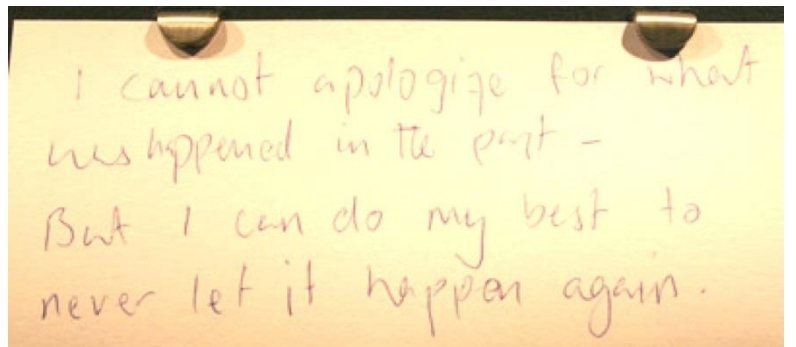 I cannot apologize for what
was happened in the past -
But I can do my best to
never let it happen again.